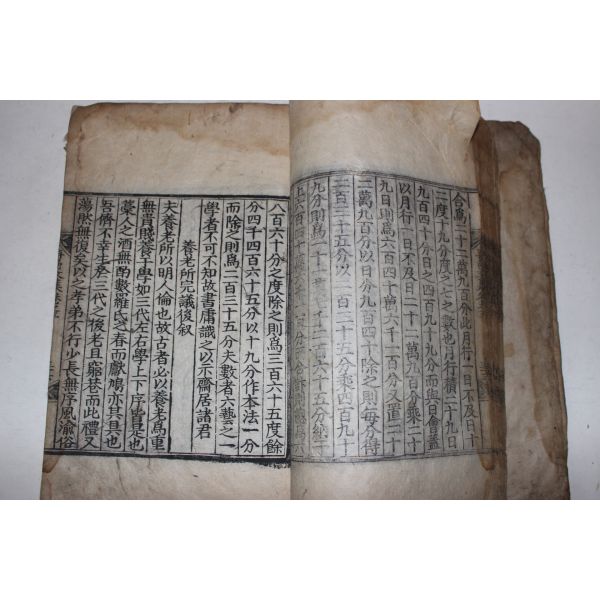 合爲二十二萬九百分此月行一日不及日十
二度十九分度之七之數也月行積二十九日
九百四十分日之四百九十九分而與日會蓋
以月行一日不及日二十二萬九百分乘二十
九日則爲六百四十萬六千一百分又進二十
二萬九百分以日分九百四十除之則每分得
二百三十五分以二百三十五分乘四百九十
九分則爲一十一萬七千二百六十五分
八百六十分之度除之則爲三百六十五度餘
分四千四百六十五分以十九分作本法一分
而除之則爲二百三十五分夫數者六藝之一
學者不可不知故書庸識之以示齋居諸君
養老所完議後叙
夫養老所以明人倫也故古者必以養老爲重
無貴賤養于學如三代左右學上下序皆是也
藁人之酒無酌數羅氏之春而獻鳩亦其具也
吾儕不幸生於三代之後老且窮巷而此禮又
蕩然無復矣以之孝弟不行少長無序風渝俗